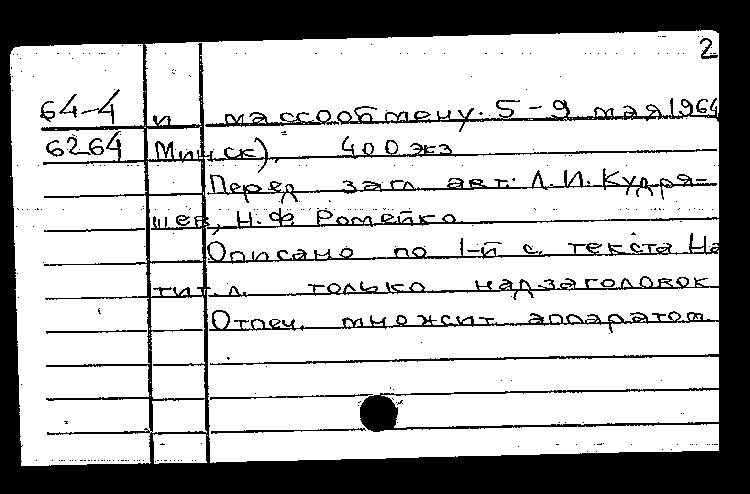 2
64-4 и массообмену. 5-9 мая 1964
6264 Минск), 400 экз
Перед загл. авт: Л.И. Кудря-
шев, Н.Ф. Ромейко.
Описано по 1-й с. текста На
тит.л. только надзаголовок
Отпеч. множит. аппаратом